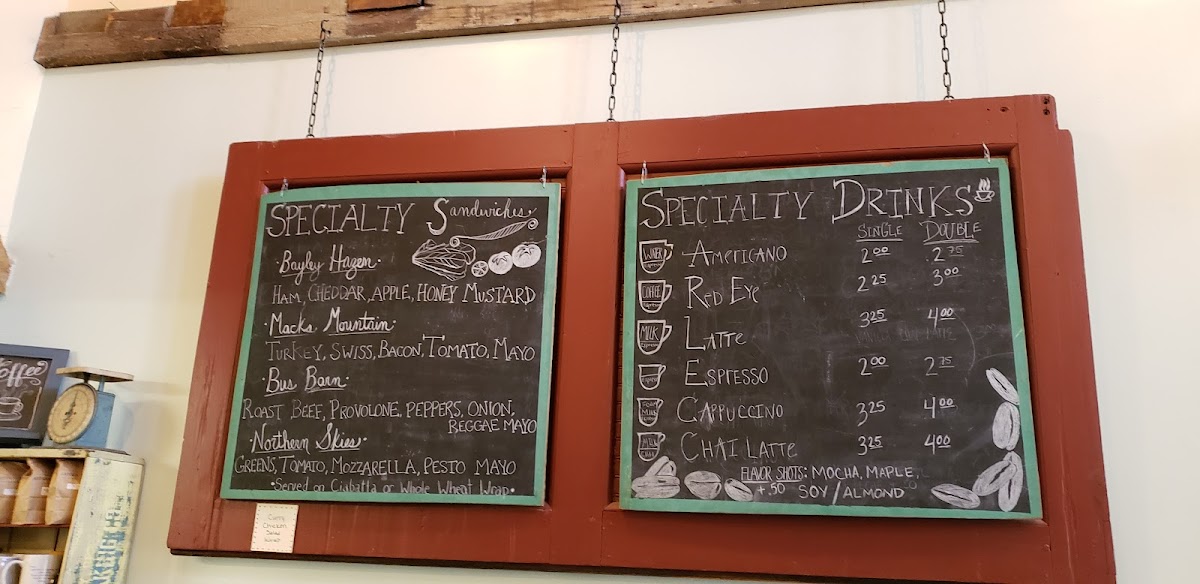 SPECIALTY Sandwiches
·Bayley Hazen·
HAM, CHEDDAR, APPLE, HONEY MUSTARD
·Macks Mountain·
TURKEY, SWISS, BACON, TOMATO, MAYO
·Bus Barn·
ROAST BEEF, PROVOLONE, PEPPERS, ONION,
REGGAE MAYO
·Northern Skies·
GREENS, TOMATO, MOZZARELLA, PESTO MAYO
·Served on Ciabatta or Whole Wheat Wrap·
Curry
Chicken
Salad
Wrap
SPECIALTY DRINKS
SINGLE DOUBLE
WATER AMERICANO 2.00 2.75
COFFEE RED EYE 2.25 3.00
MILK LATTE 3.25 4.00
ESPRESSO 2.00 2.75
FOAM MILK CAPPUCCINO 3.25 4.00
MILK CHAI CHAI LATTE 3.25 4.00
FLAVOR SHOTS: MOCHA, MAPLE,
+.50 SOY/ALMOND
Coffee